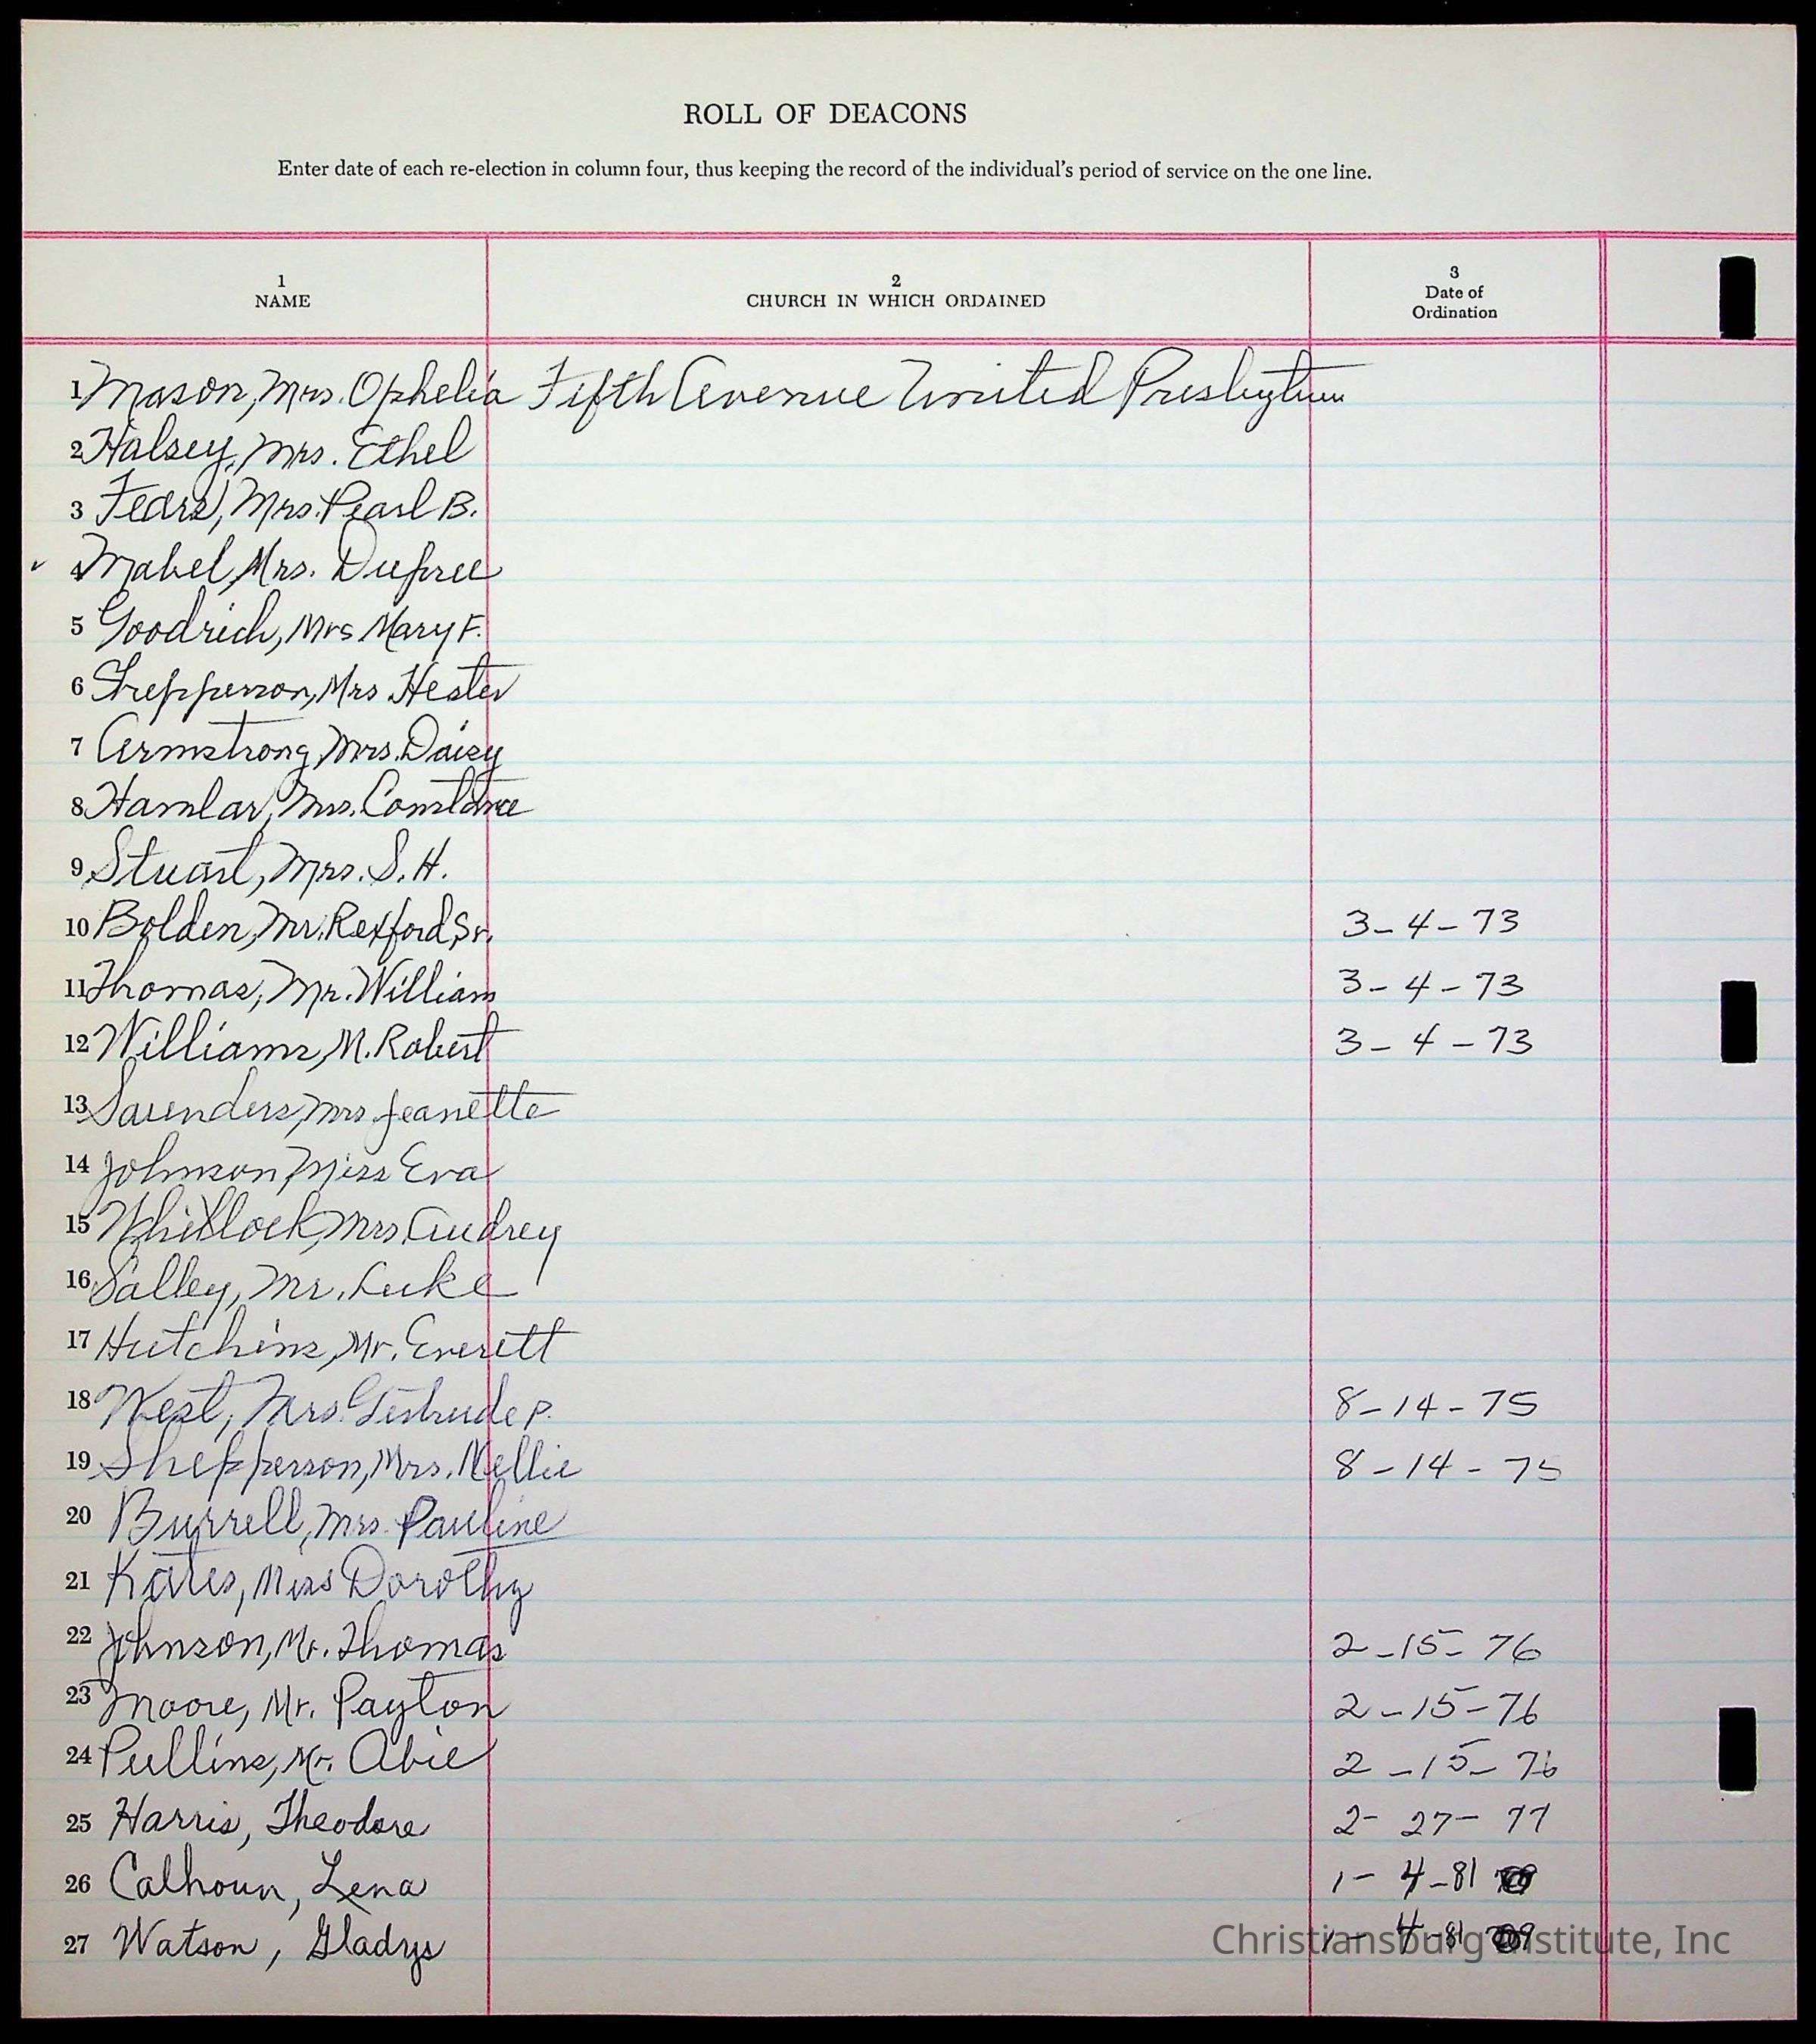 ROLL OF DEACONS
Enter date of each re-election in column four, thus keeping the record of the individual's period of service on the one line.
1 NAME 2 CHURCH IN WHICH ORDAINED 3 Date of Ordination
1 Mason, Mrs. Ophelia Fifth Avenue United Presbyterian
2 Halsey, Mrs. Ethel
3 Fears, Mrs. Pearl B.
✓ 4 Mabel, Mrs. Dupree
5 Goodrich, Mrs Mary F.
6 Shepperson, Mrs Hester
7 Armstrong, Mrs. Daisy
8 Hamlar, Mrs. Constance
9 Stuart, Mrs. S. H.
10 Bolden, Mr. Rexford, Sr. 3-4-73
11 Thomas, Mr. William 3-4-73
12 Williams, M. Robert 3-4-73
13 Saunders, Mrs Jeanette
14 Johnson, Miss Eva
15 Whitlock, Mrs Audrey
16 Salley, Mr. Luke
17 Hutchins, Mr. Everett
18 West, Mrs. Gertrude P. 8-14-75
19 Shepperson, Mrs. Nellie 8-14-75
20 Burrell, Mrs. Pauline
21 Kates, Miss Dorothy
22 Johnson, Mr. Thomas 2-15-76
23 Moore, Mr. Payton 2-15-76
24 Pullins, Mr. Abie 2-15-76
25 Harris, Theodore 2-27-77
26 Calhoun, Lena 1-4-81
27 Watson, Gladys 1-4-81
Christiansburg Institute, Inc